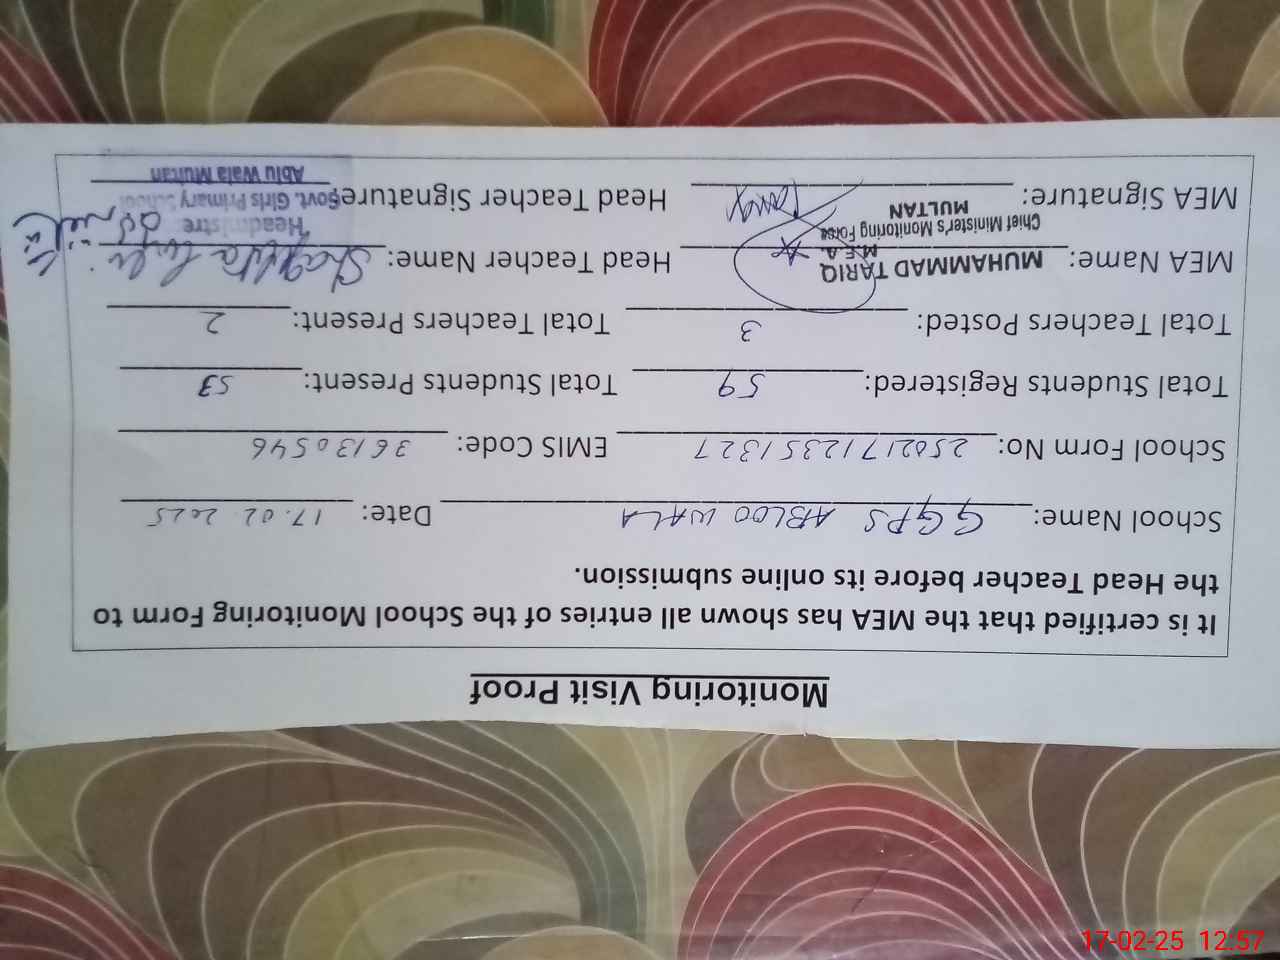 Monitoring Visit Proof
It is certified that the MEA has shown all entries of the School Monitoring Form to
the Head Teacher before its online submission.
School Name: GGPS ABLOO WALA Date: 17.02.2025
School Form No: 25021712351327 EMIS Code: 36130546
Total Students Registered: 59 Total Students Present: 53
Total Teachers Posted: 3 Total Teachers Present: 2
MEA Name: MUHAMMAD TARIQ Head Teacher Name: Shagufta
M.E.A.
Chief Minister's Monitoring Force
MULTAN
MEA Signature: Tariq Head Teacher Signature:
Headmistre
Govt. Girls Primary School
Ablu Wala Multan
17-02-25 12:57